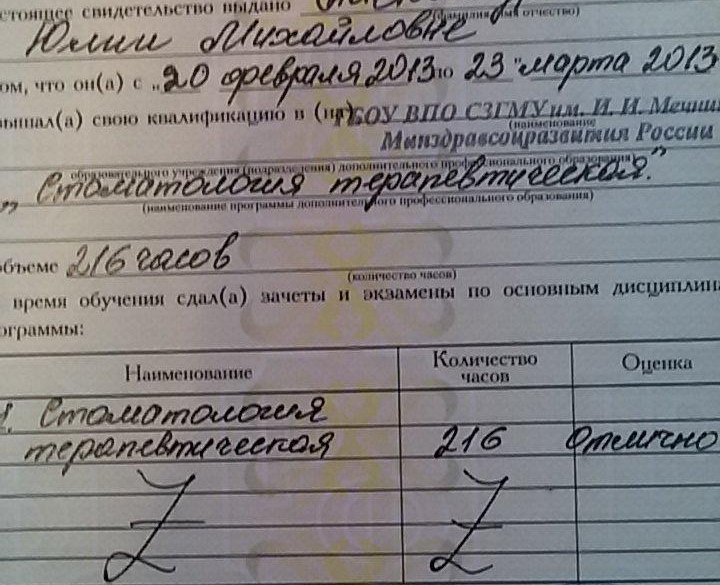 стоящее свидетельство выдано
(фамилия, имя, отчество)
Юлии Михайловне
ом, что он(а) с „20 февраля 2013 по 23 " марта 2013
вышал(а) свою квалификацию в (на) ГБОУ ВПО СЗГМУ им. И. И. Мечни
(наименование
Минздравсоцразвития России
образовательного учреждения (подразделения) дополнительного профессионального образования)
„ Стоматология терапевтическая."
(наименование программы дополнительного профессионального образования)
объеме 216 часов
(количество часов)
время обучения сдал(а) зачеты и экзамены по основным дисциплина
ограммы:
Наименование Количество часов Оценка
1. Стоматология
терапевтическая 216 отлично
Z Z